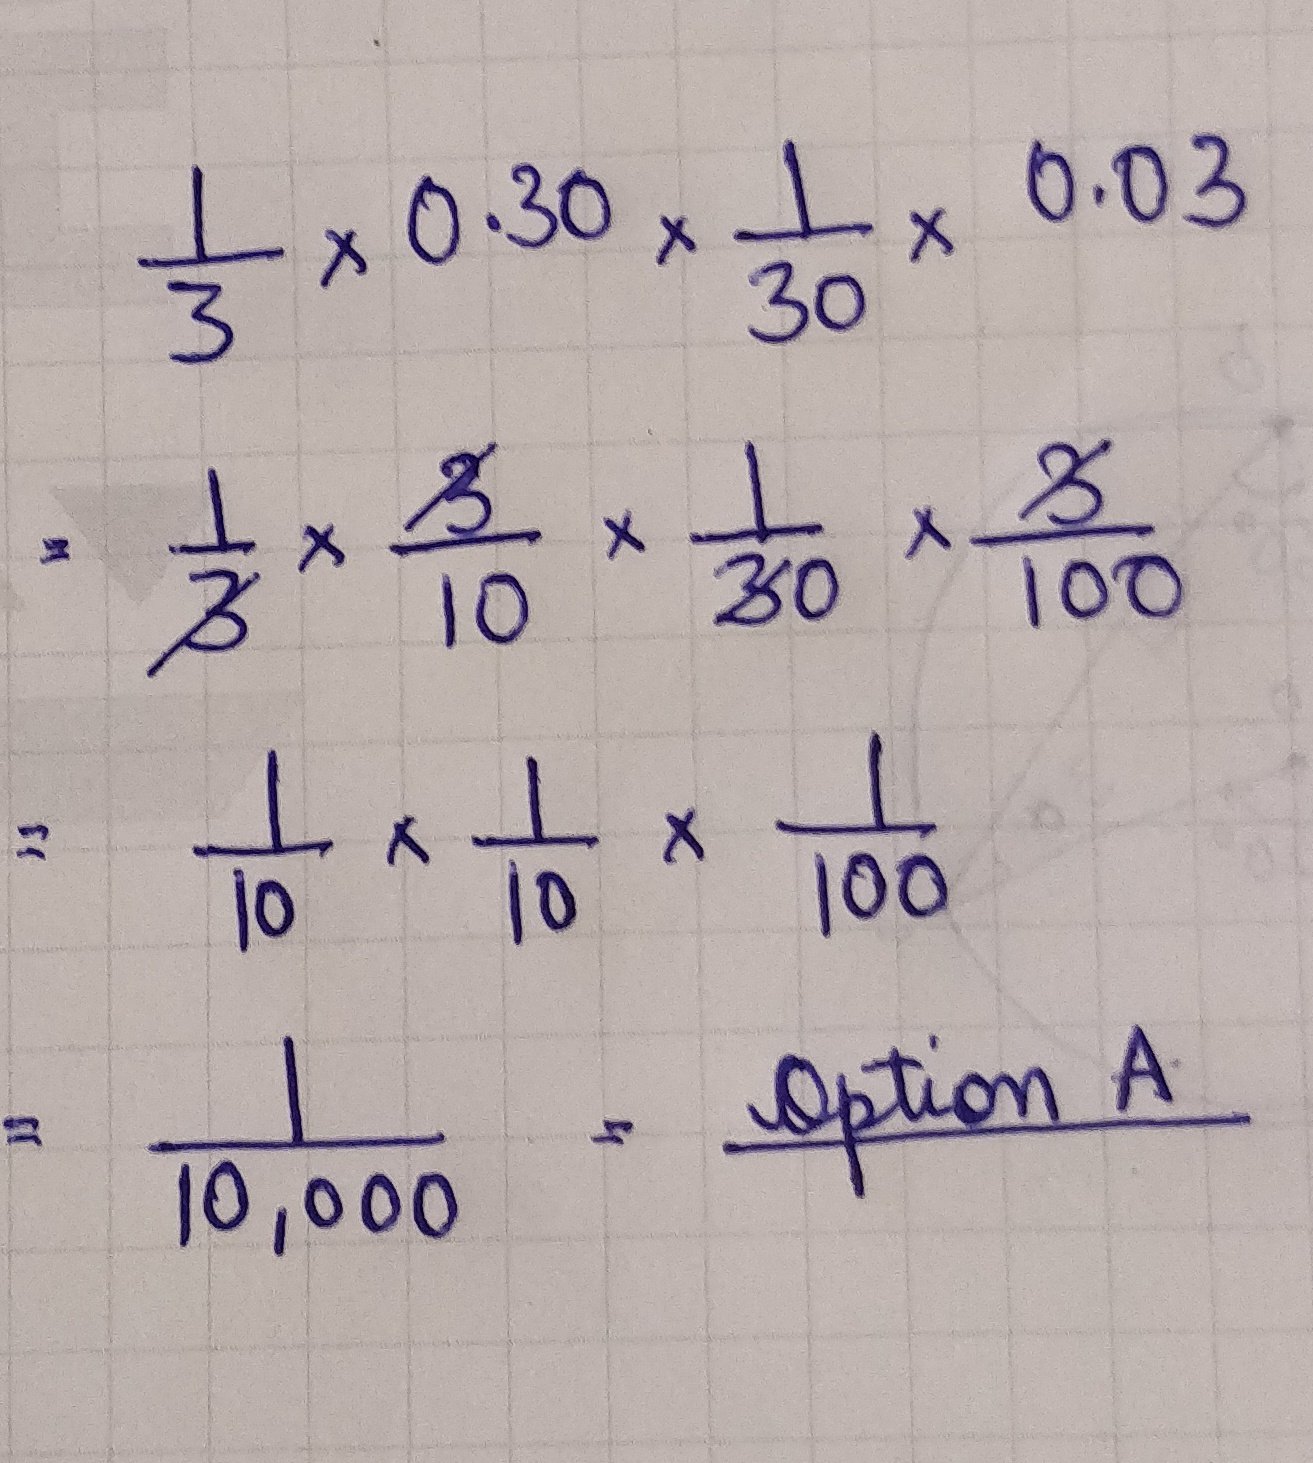 1/3 × 0.30 × 1/30 × 0.03
= 1/3 × 3/10 × 1/30 × 3/100
= 1/10 × 1/10 × 1/100
= 1/10,000 = Option A